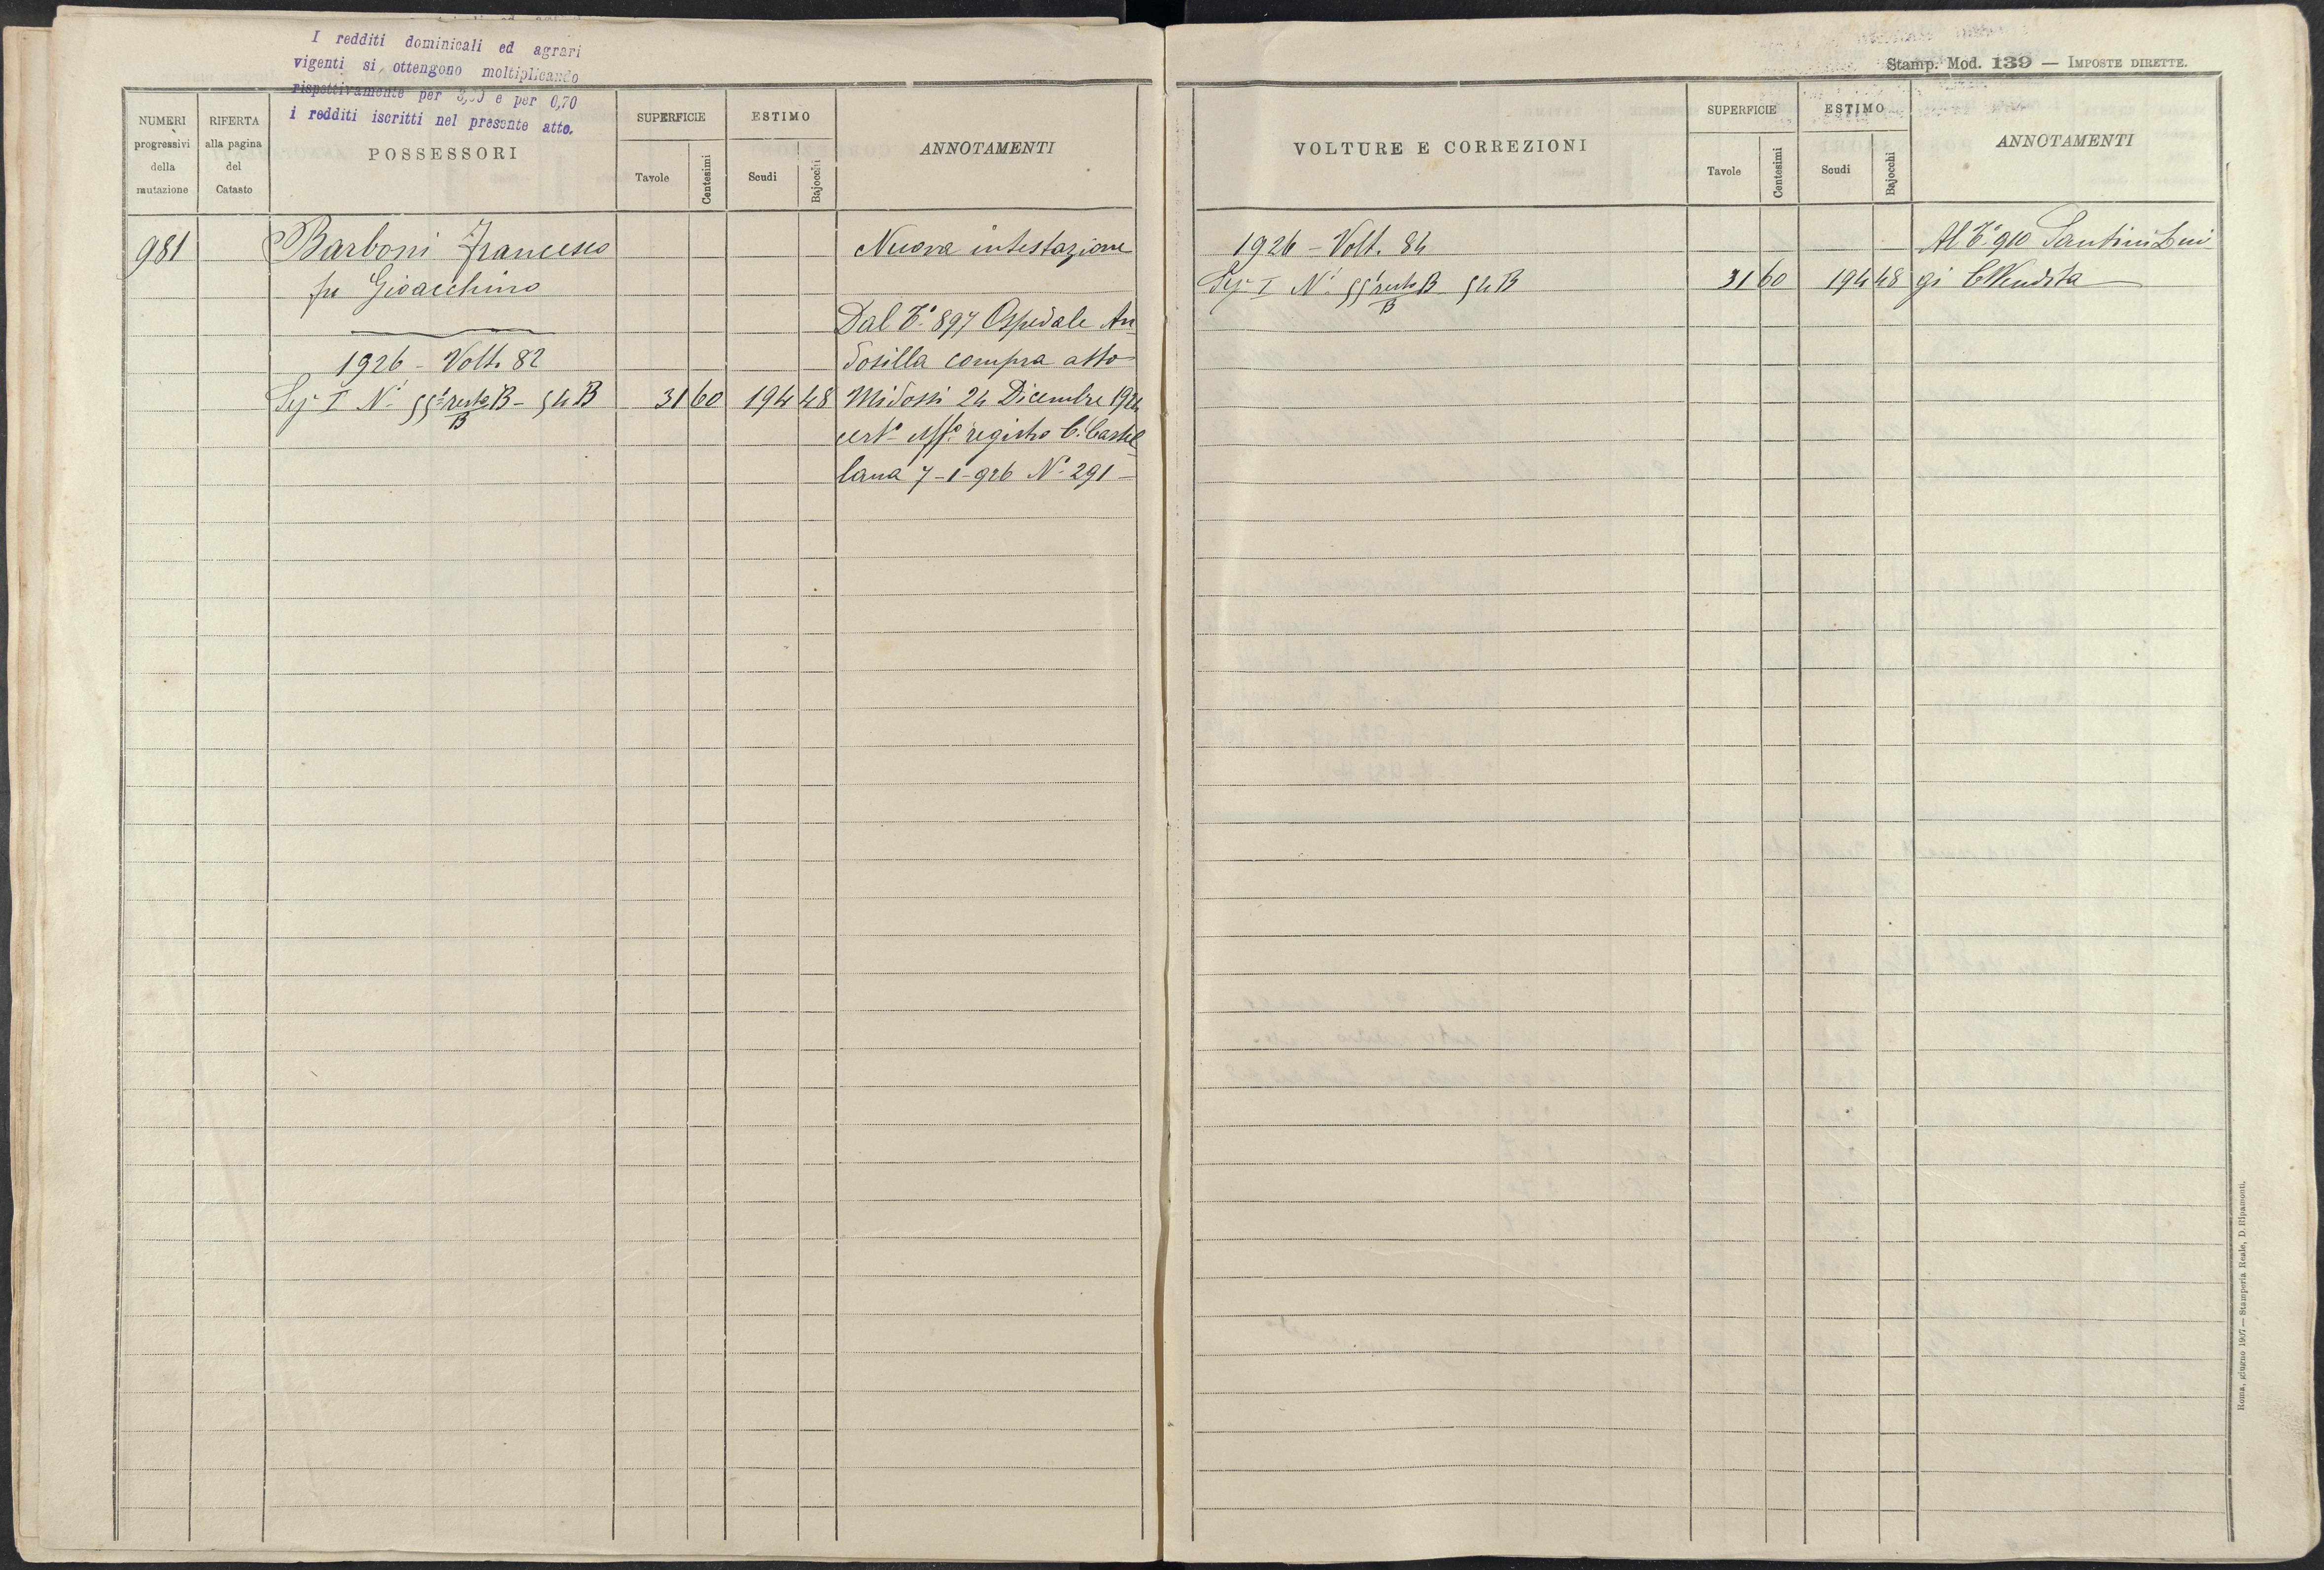 I redditi dominicali ed agrari
vigenti si ottengono moltiplicando
rispettivamente per e per 0,70
i redditi iscritti nel presente atto.
NUMERI
progressivi
della
mutazione
RIFERTA
alla pagina
del
Catasto
POSSESSORI
SUPERFICIE
Tavole
Centesimi
ESTIMO
Scudi
Bajocchi
ANNOTAMENTI
981
Barboni Francesco
fu Gioacchino
1926 - Volt. 82
Sez I N.i 55 resto B - 54 B
B
31 60
194 48
Nuova intestazione
Dal T.o 897 Ospedale An
dosilla compra atto
Midossi 24 Dicembre 192
cert.o Uff.o registro C. Castel
lana 7-1-926 N. 291 -
Stamp. Mod. 139 — IMPOSTE DIRETTE.
VOLTURE E CORREZIONI
SUPERFICIE
Tavole
Centesimi
ESTIMO
Scudi
Bajocchi
ANNOTAMENTI
1926 - Volt. 84
Sez I N.i 55 resto B 54 B
B
31 60
194 48
Al T.o 910 Santini Lui
gi Vendita
Roma, giugno 1907 — Stamperia Reale, D. Ripamonti.